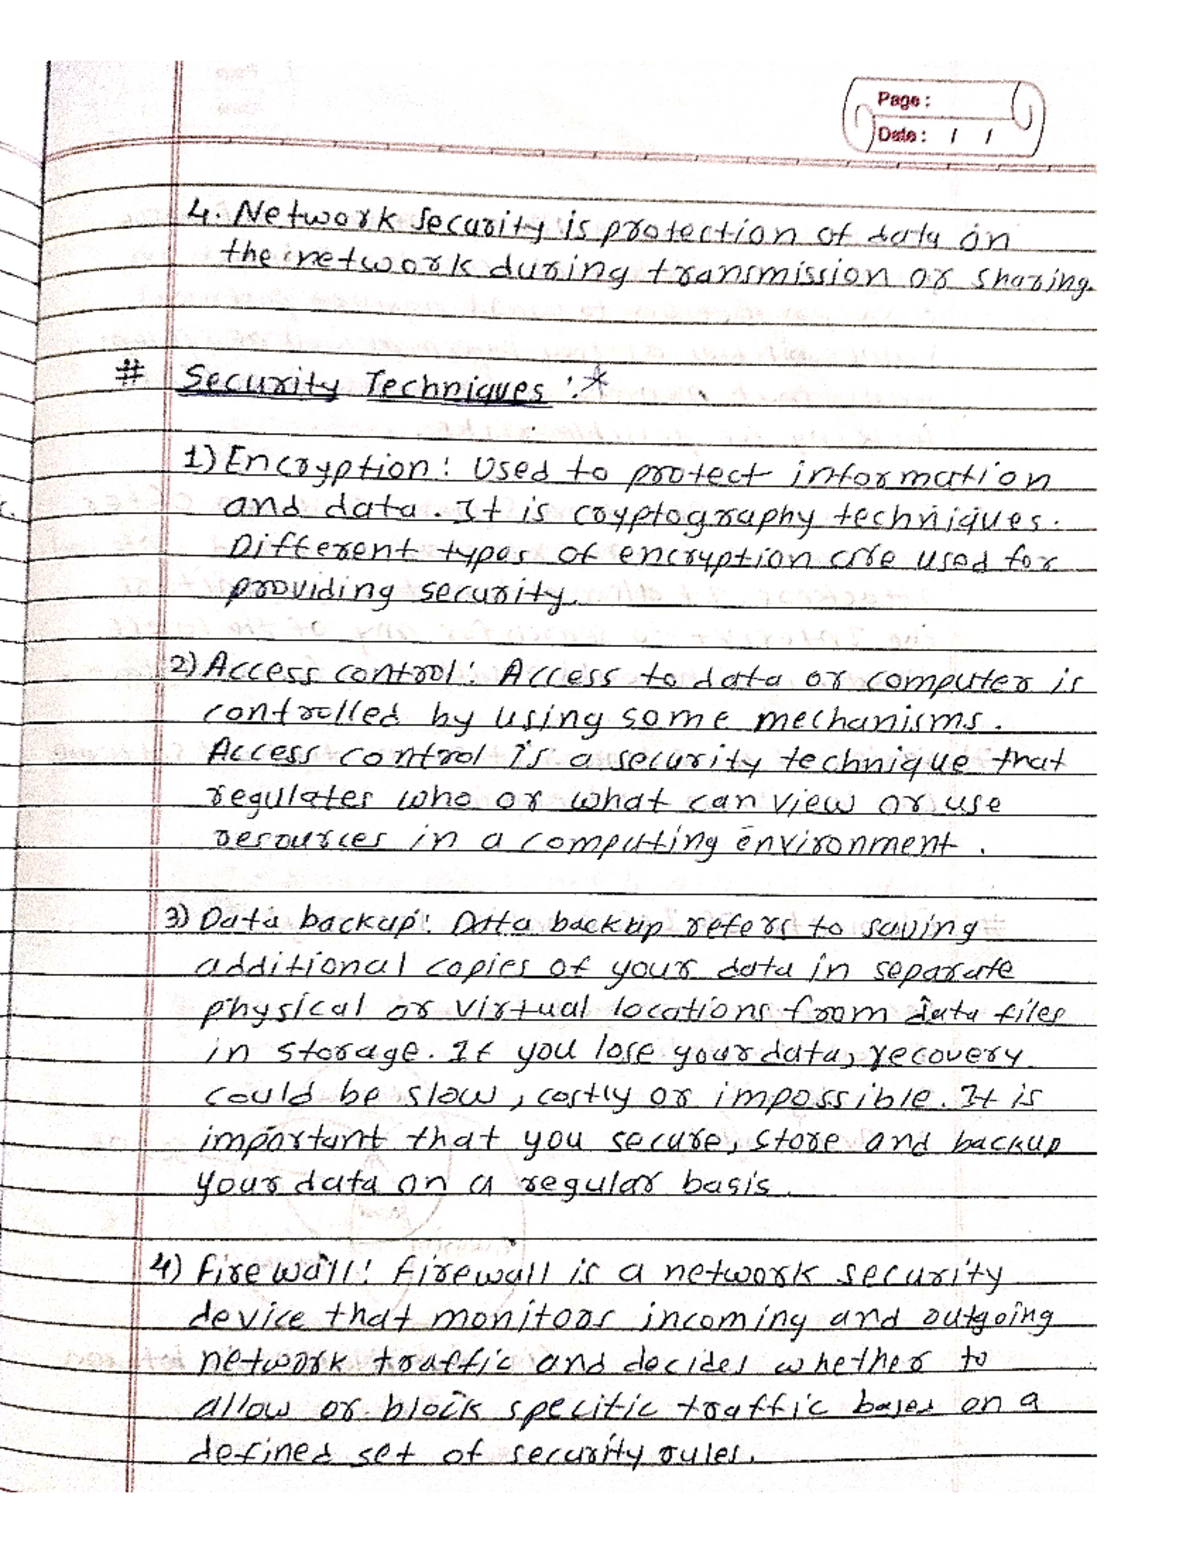 Page :
Date : / /
4. Network Security is protection of data on
the network during transmission or sharing.
# Security Techniques : *
1) Encryption : Used to protect information
and data. It is cryptography techniques.
Different types of encryption are used for
providing security.
2) Access control : Access to data or computer is
controlled by using some mechanisms.
Access control is a security technique that
regulates who or what can view or use
resources in a computing environment.
3) Data backup : Data backup refers to saving
additional copies of your data in separate
physical or virtual locations from data files
in storage. If you lose your data, recovery
could be slow, costly or impossible. It is
important that you secure, store and backup
your data on a regular basis.
4) Firewall : Firewall is a network security
device that monitors incoming and outgoing
network traffic and decides whether to
allow or block specific traffic based on a
defined set of security rules.